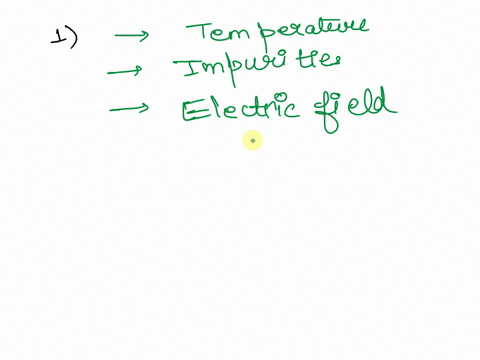 1) → Temperature
→ Impurities
→ Electric field